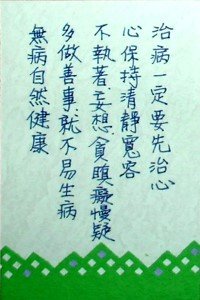 治病一定要先治心
心保持清靜寬容
不執著.妄想.貪瞋癡慢疑
多做善事.就不易生病
無病自然健康